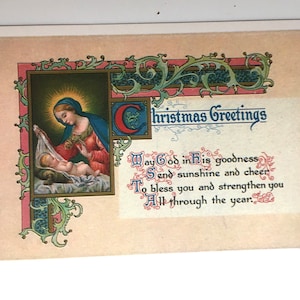 Christmas Greetings
May God in His goodness
Send sunshine and cheer,
To bless you and strengthen you
All through the year.